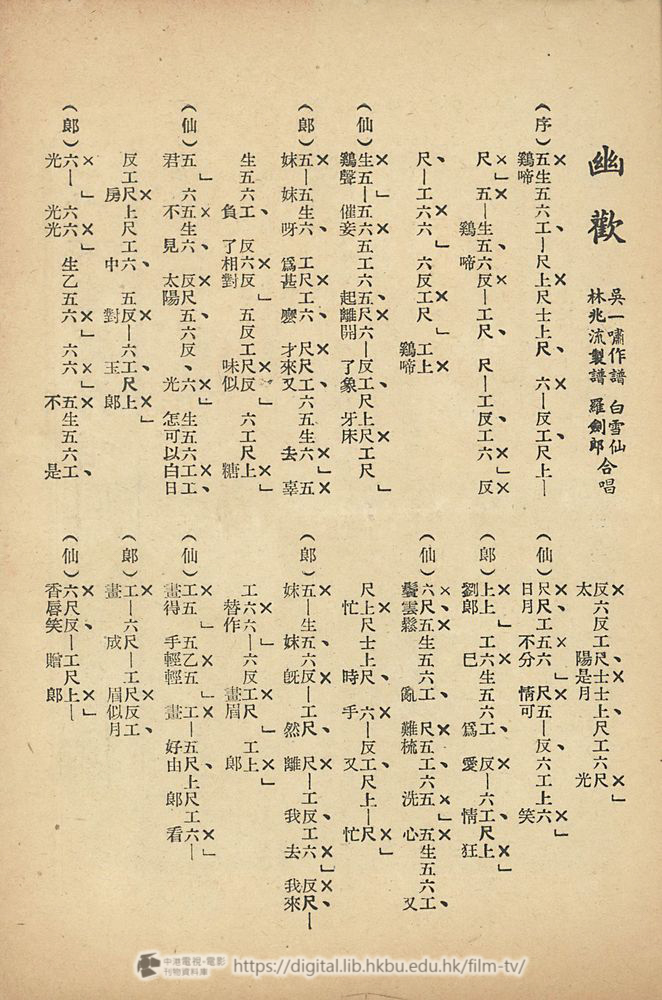 幽歡
吳一嘯作譜 白雪仙
林兆流製譜 羅劍郎 合唱
(序)五生五六工、—尺上尺士上尺、 六—反工尺上—
鷄啼
尺」 五—生五六反—工尺、 尺—工反工、六」反
鷄啼
尺、—工六六」 六反工尺、 工上
鷄啼
(仙)生五—五六五工六、五尺六—反工尺上尺工尺」
鷄聲 催妾 起離開 了象 牙床
(郎)五—五生六、 工尺工六、 尺尺工六五生六」五
妹 妹呀 爲甚 麼 才來又 去 辜
生五六工、 反六反」 五反工尺反 六工尺上」
負 了相對 味似 糖
(仙)五」 六五生六、 反尺五六反、六」 生五六工工、
君 不見 太陽 光 怎可以白日
反工尺上尺工六、 五反—六工尺上」
房 中 對 玉 郎
(郎)六—」六六、 生乙五六」 六六」五生五六工、
光 光光 不 是
反六反工尺士士上尺工六尺」
太 陽是月 光
(仙)尺尺工五六 尺五—反六工上六」
日月 不分 情可 笑
(郎)上上」 工六生五六工、 反—六工尺上」
劉郎 巳 爲 愛 情 狂
(仙)六尺五生五六工、 尺五工六五」五生五六工、
鬢雲鬆 亂 難梳 洗 心 又
尺上尺士上尺、 六—反工尺上—尺」
忙 時 手 又 忙
(郎)五—生五六反—工尺、 尺—工反工六」 反尺—
妹 妹 既 然 離 我 去 我來
工六六—六反工尺、 工上」
替作 畫眉 郎
(仙)工五、 五乙五」 工—五尺上尺工六—」
畫得 手輕輕 畫 好由 郎 看
(郎)工—六尺—工尺反工、
畫 成 眉似月
(仙)六尺反—工尺上—」
香唇笑 贈 郎
中港電視·電影
刊物資料庫
https://digital.lib.hkbu.edu.hk/film-tv/